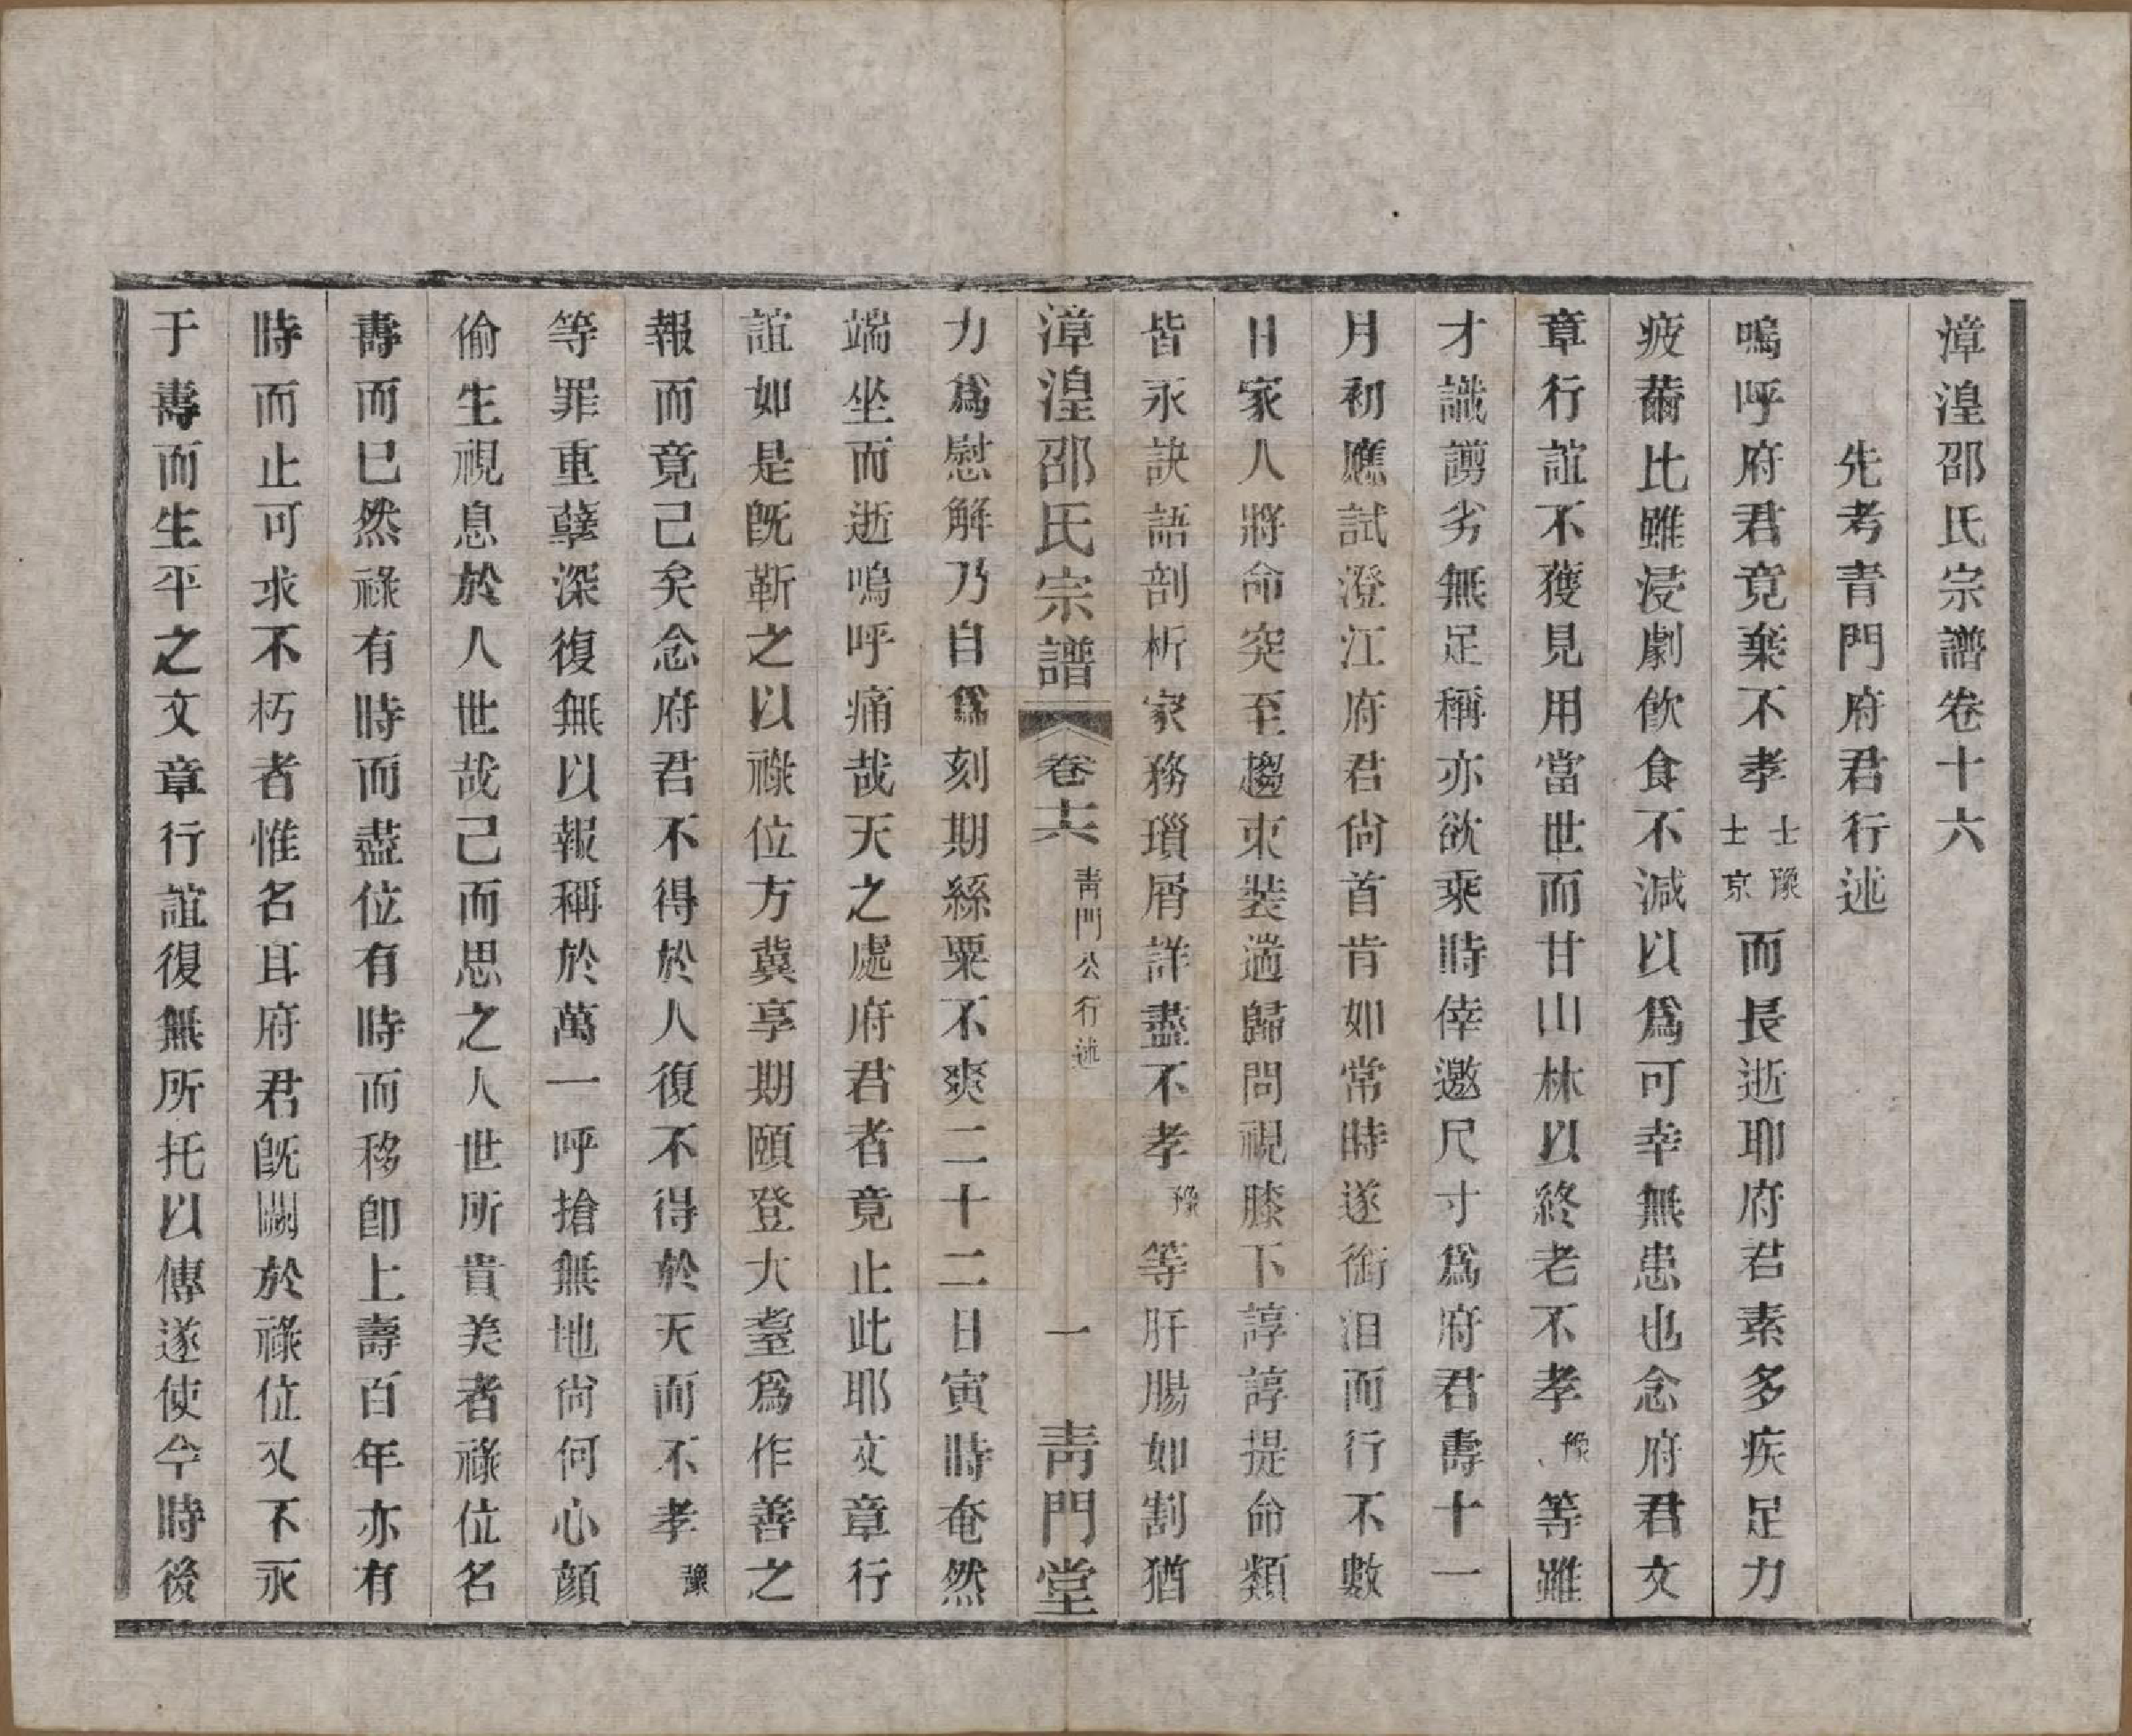 漳湟邵氏宗譜卷十六
先考青門府君行述
嗚呼府君竟棄不孝士豫士京而長逝耶府君素多疾足力
疲薾比雖浸劇飲食不減以爲可幸無患也念府君文
章行誼不獲見用當世而甘山林以終老不孝豫等雖
才識譾劣無足稱亦欲乘時倖邀尺寸爲府君壽十一
月初應試澄江府君尙首肯如常時遂銜泪而行不數
日家人將命突至趨束裝遄歸問視膝下諄諄提命類
皆永訣語剖析家務瑣屑詳盡不孝豫等肝腸如割猶
漳湟邵氏宗譜
卷十六
青門公行述
一
青門堂
力爲慰解乃自爲刻期絲粟不爽二十二日寅時奄然
端坐而逝嗚呼痛哉天之處府君者竟止此耶文章行
誼如是旣靳之以祿位方冀享期頤登大耋爲作善之
報而竟己矣念府君不得於人復不得於天而不孝豫
等罪重孽深復無以報稱於萬一呼搶無地尙何心顔
偷生視息於人世哉己而思之人世所貴美者祿位名
壽而已然祿有時而盡位有時而移卽上壽百年亦有
時而止可求不朽者惟名耳府君旣闕於祿位又不永
于壽而生平之文章行誼復無所托以傳遂使今時後